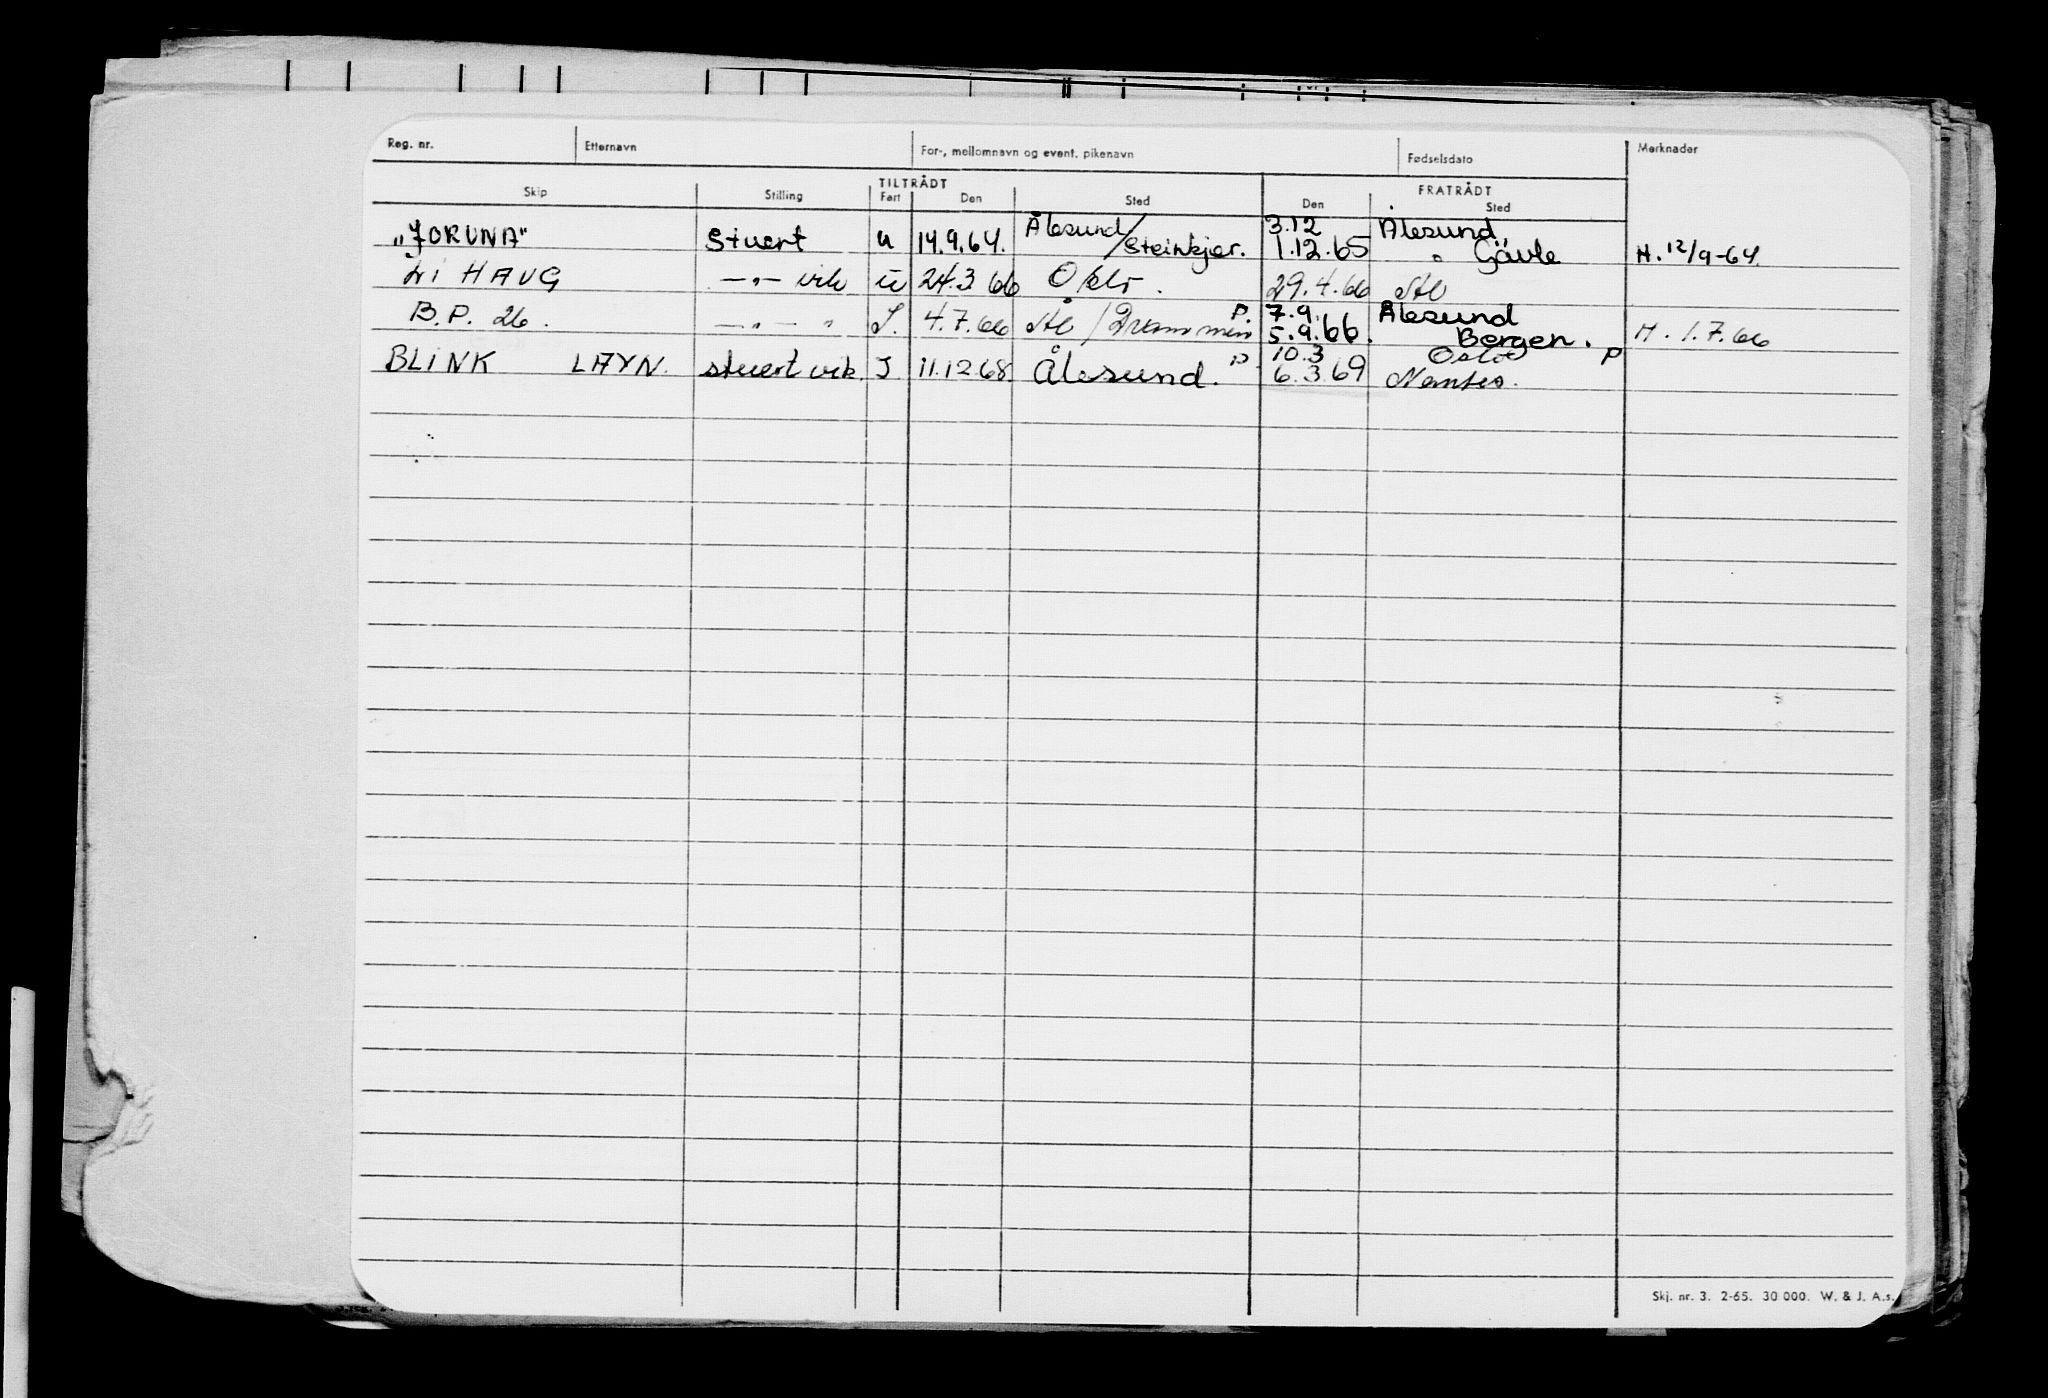 Reg. nr. Etternavn For-, mellomnavn og event. pikenavn Fødselsdato Merknader
TILTRÅDT FRATRÅDT
Skip Stilling Fart Den Sted Den Sted
„JORUNA" Stuert u 14.9.64. Ålesund/Steinkjer. 3.12 Ålesund
1.12.65 " Gävle H. 12/9-64.
LI HAUG —"— vik u 24.3 66 Oslo. 29.4.66 Ål
B.P. 26. —"— " I. 4.7.66 Ål/Drammen P. 7.9. Ålesund
5.9.66. Bergen. H. 1.7.66
BLINK LAYN. stuert vik. I 11.12.68. Ålesund. P 10.3 Oslo P
6.3.69 Nantes.
Skj. nr. 3. 2-65. 30 000. W. & J. A.s.